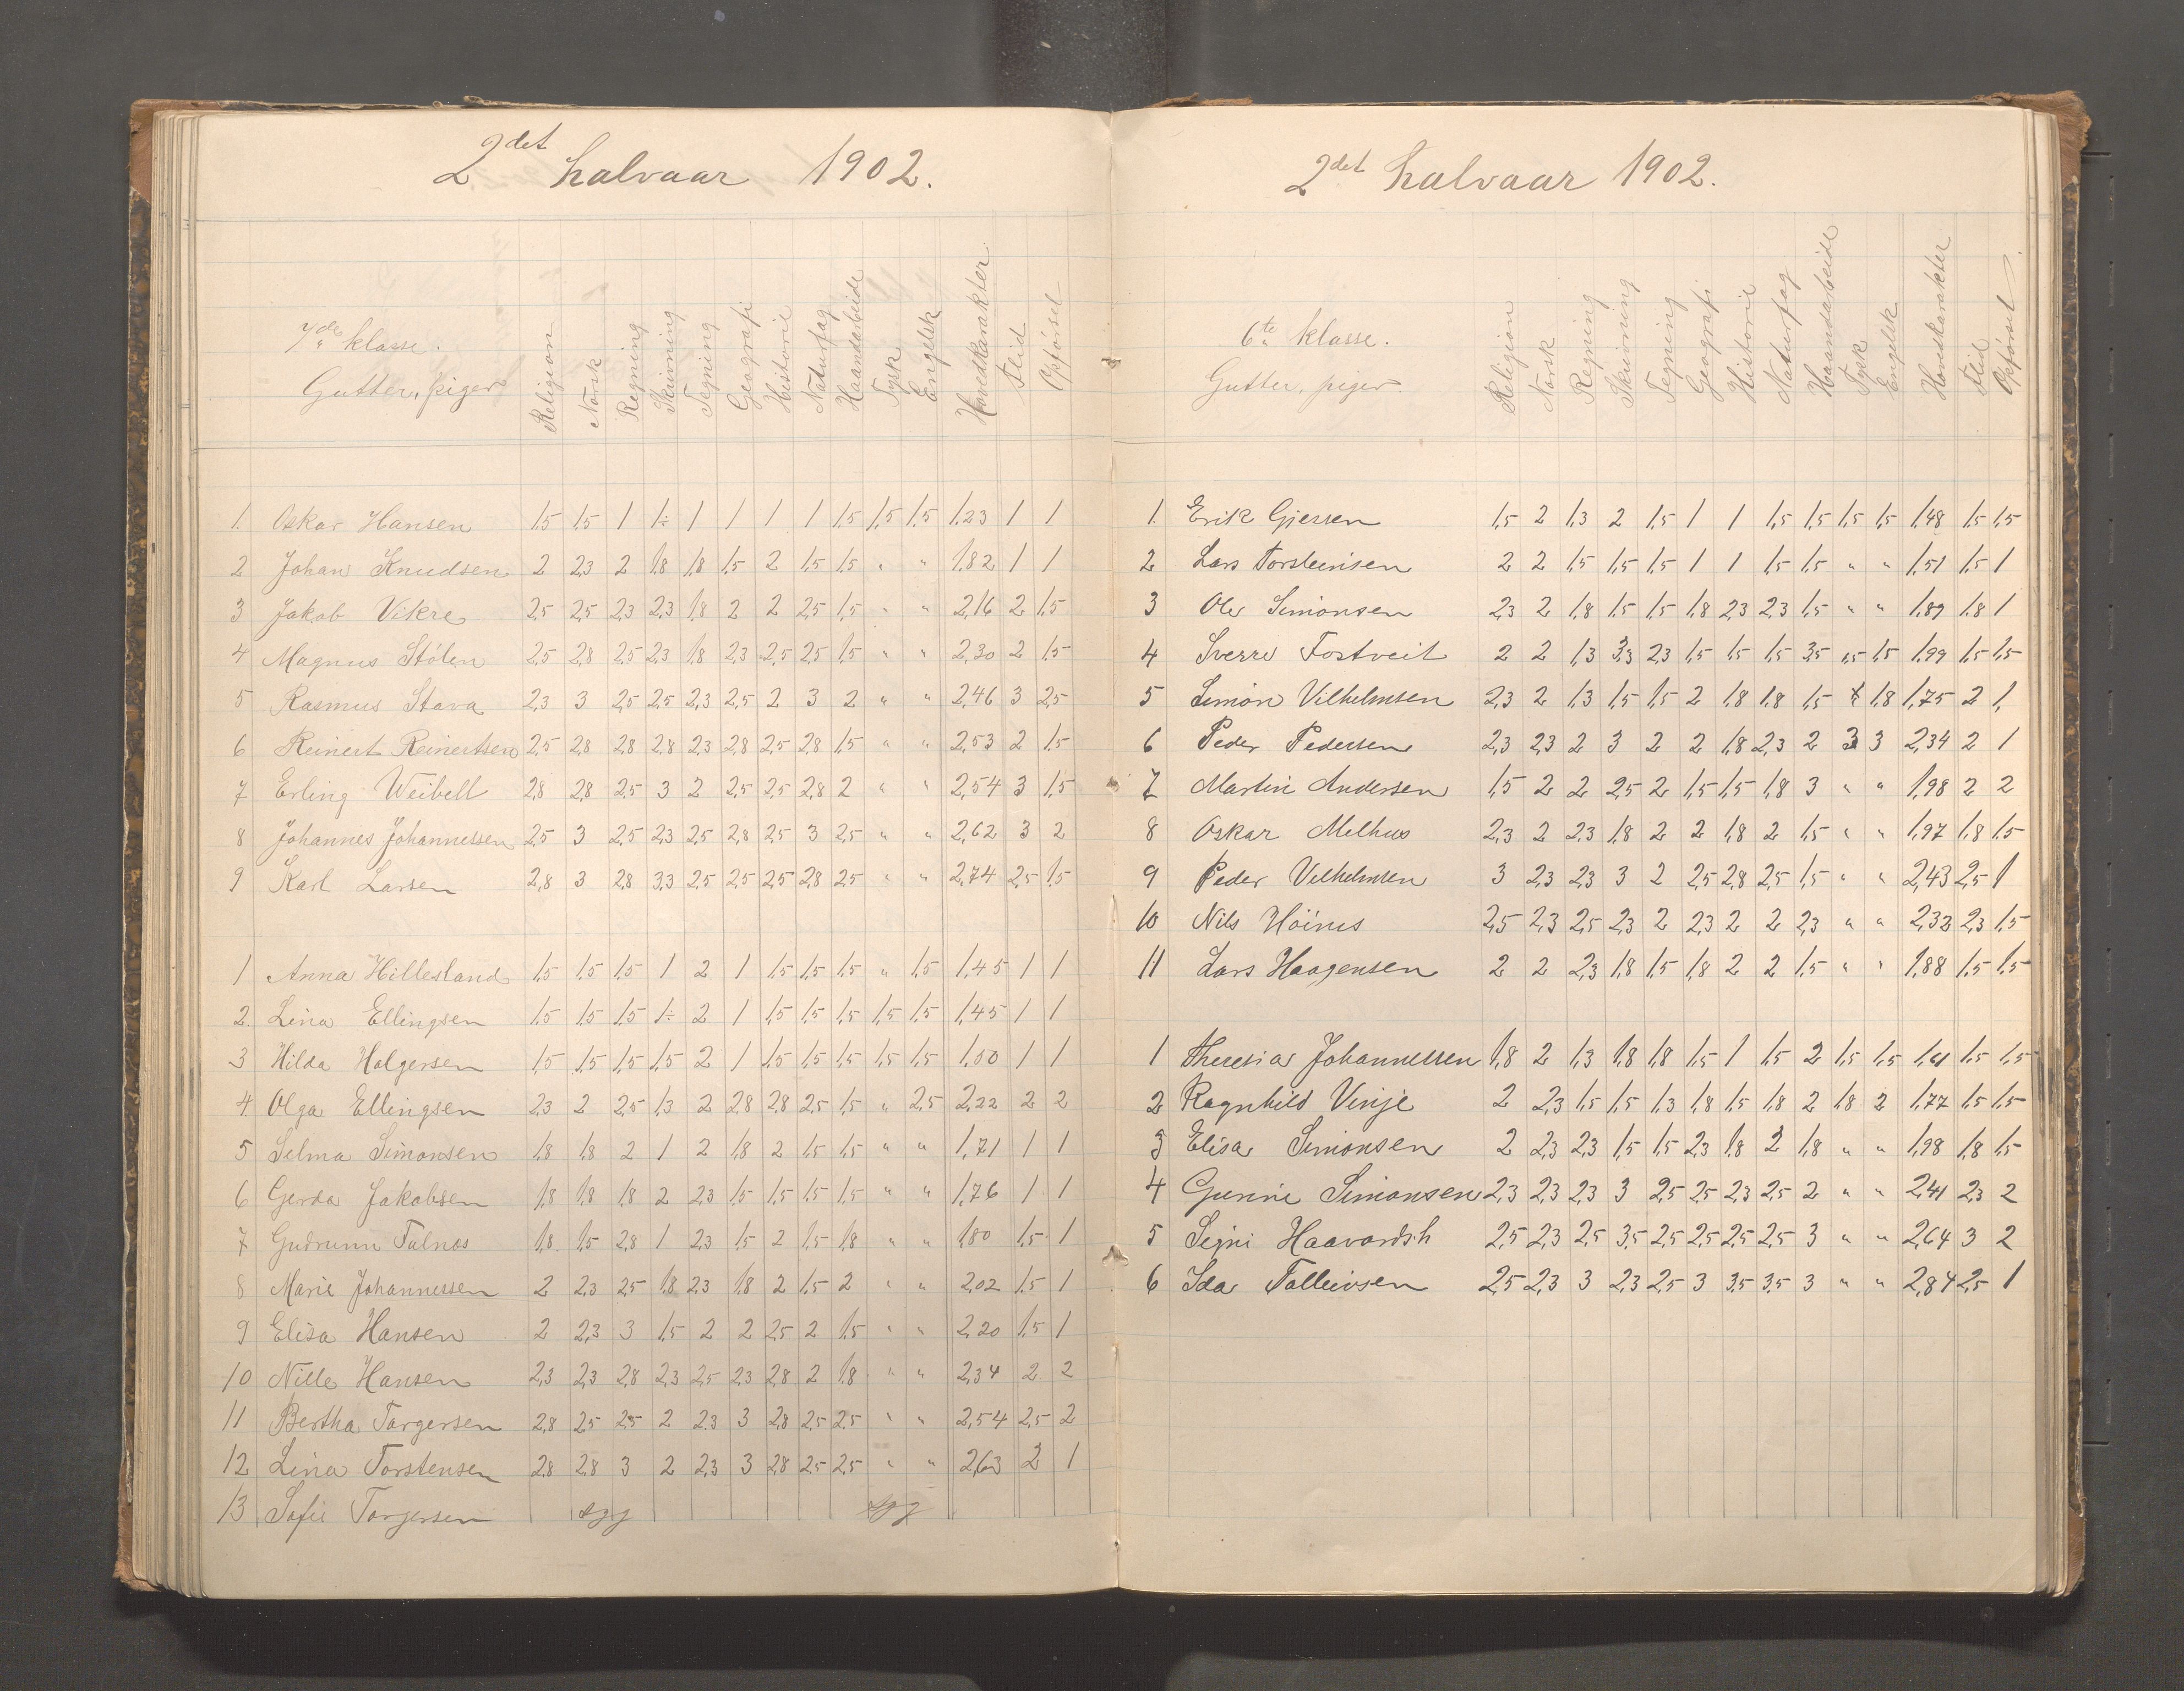 2det halvaar 1902.
7de klasse.
Gutter, piger
Religion Norsk Regning Skrivning Tegning Geografi Historie Naturfag Haandarbeide Tysk Engelsk Hovedkarakter Flid Opførsel
1 Oskar Hansen 1,5 1,5 1 1÷ 1 1 1 1 1,5 1,5 1,5 1,23 1 1
2 Johan Knudsen 2 2,3 2 1,8 1,8 1,5 2 1,5 1,5 " " 1,82 1 1
3 Jakob Vikre 2,5 2,5 2,3 2,3 1,8 2 2 2,5 1,5 " " 2,16 2 1,5
4 Magnus Stölen 2,5 2,8 2,5 2,3 1,8 2,3 2,5 2,5 1,5 " " 2,30 2 1,5
5 Rasmus Stava 2,3 3 2,5 2,5 2,3 2,5 2 3 2 " " 2,46 3 2,5
6 Reinert Reinertsen 2,5 2,8 2,8 2,8 2,3 2,8 2,5 2,8 1,5 " " 2,53 2 1,5
7 Erling Weibell 2,8 2,8 2,5 3 2 2,5 2,5 2,8 2 " " 2,54 3 1,5
8 Johannes Johannessen 2,5 3 2,5 2,3 2,5 2,8 2,5 3 2,5 " " 2,62 3 2
9 Karl Larsen 2,8 3 2,8 3,3 2,5 2,5 2,5 2,8 2,5 " " 2,74 2,5 1,5
1 Anna Hillesland 1,5 1,5 1,5 1 2 1 1,5 1,5 1,5 " 1,5 1,45 1 1
2. Lina Ellingsen 1,5 1,5 1,5 1÷ 2 1 1,5 1,5 1,5 1,5 1,5 1,45 1 1
3 Hilda Holgersen 1,5 1,5 1,5 1,5 2 1 1,5 1,5 1,5 1,5 1,5 1,50 1 1
4 Olga Ellingsen 2,3 2 2,5 1,3 2 2,8 2,8 2,5 1,5 " 2,5 2,22 2 2
5 Selma Simonsen 1,8 1,8 2 1 2 1,8 2 1,5 1,5 " " 1,71 1 1
6 Gerda Jakobsen 1,8 1,8 1,8 2 2,3 1,5 1,5 1,5 1,5 " " 1,76 1 1
7 Gudrunn Falnes 1,8 1,5 2,8 1 2,3 1,5 2 1,5 1,8 " " 1,80 1,5 1
8 Marie Johannessen 2 2,3 2,5 1,8 2,3 1,8 2 1,5 2 " " 2,02 1,5 1
9 Elisa Hansen 2 2,3 3 1,5 2 2 2,5 2 1,5 " " 2,20 1,5 1
10 Nille Hansen 2,3 2,3 2,8 2,3 2,5 2,3 2,8 2 1,8 " " 2,34 2 2
11 Bertha Torgersen 2,8 2,5 2,5 2 2,3 3 2,8 2,5 2,5 " " 2,54 2,5 2
12 Lina Torstensen 2,8 2,8 3 2 2,3 3 2,8 2,5 2,5 " " 2,63 2 1
13 Sofie Torgersen syg syg
2det halvaar 1902.
6te klasse.
Gutter, piger
Religion Norsk Regning Skrivning Tegning Geografi Historie Naturfag Haandarbeide Tysk Engelsk Hovedkarakter Flid Opførsel
1. Erik Gjessen 1,5 2 1,3 2 1,5 1 1 1,5 1,5 1,5 1,5 1,48 1,5 1,5
2 Lars Torsteinsen 2 2 1,5 1,5 1,5 1 1 1,5 1,5 " " 1,51 1,5 1
3 Ole Simonsen 2,3 2 1,8 1,5 1,5 1,8 2,3 2,3 1,5 " " 1,89 1,8 1
4 Sverre Tostveit 2 2 1,3 3,3 2,3 1,5 1,5 1,5 3,5 1,5 1,5 1,99 1,5 1,5
5 Simon Vilhelmsen 2,3 2 1,3 1,5 1,5 2 1,8 1,8 1,5 1,8 1,75 2 1,
6 Peder Pedersen 2,3 2,3 2 3 2 2 1,8 2,3 2 3 3 2,34 2 1
7 Martin Andersen 1,5 2 2 2,5 2 1,5 1,5 1,8 3 " " 1,98 2 2
8 Oskar Melhus 2,3 2 2,3 1,8 2 2 1,8 2 1,5 " " 1,97 1,8 1,5
9 Peder Vilhelmsen 3 2,3 2,3 3 2 2,5 2,8 2,5 1,5 " " 2,43 2,5 1
10 Nils Höines 2,5 2,3 2,5 2,3 2 2,3 2 2 2,3 " " 2,32 2,3 1,5
11 Lars Haagensen 2 2 2,3 1,8 1,5 1,8 2 2 1,5 " " 1,88 1,5 1,5
1 Theresia Johannessen 1,8 2 1,3 1,8 1,8 1,5 1 1,5 2 1,5 1,5 1,61 1,5 1,5
2 Ragnhild Vinje 2 2,3 1,5 1,5 1,3 1,8 1,5 1,8 2 1,8 2 1,77 1,5 1,5
3 Elisa Simonsen 2 2,3 2,3 1,5 1,5 2,3 1,8 2 1,8 " " 1,98 1,8 1,5
4 Gurine Simonsen 2,3 2,3 2,3 3 2,5 2,5 2,3 2,5 2 " " 2,41 2,3 2
5 Signi Haavardsh 2,5 2,3 2,5 3,5 2,5 2,5 2,5 2,5 3 " " 2,64 3 2
6 Ida Tolleivsen 2,5 2,3 3 2,3 2,5 3 3,5 3,5 3 " " 2,84 2,5 1